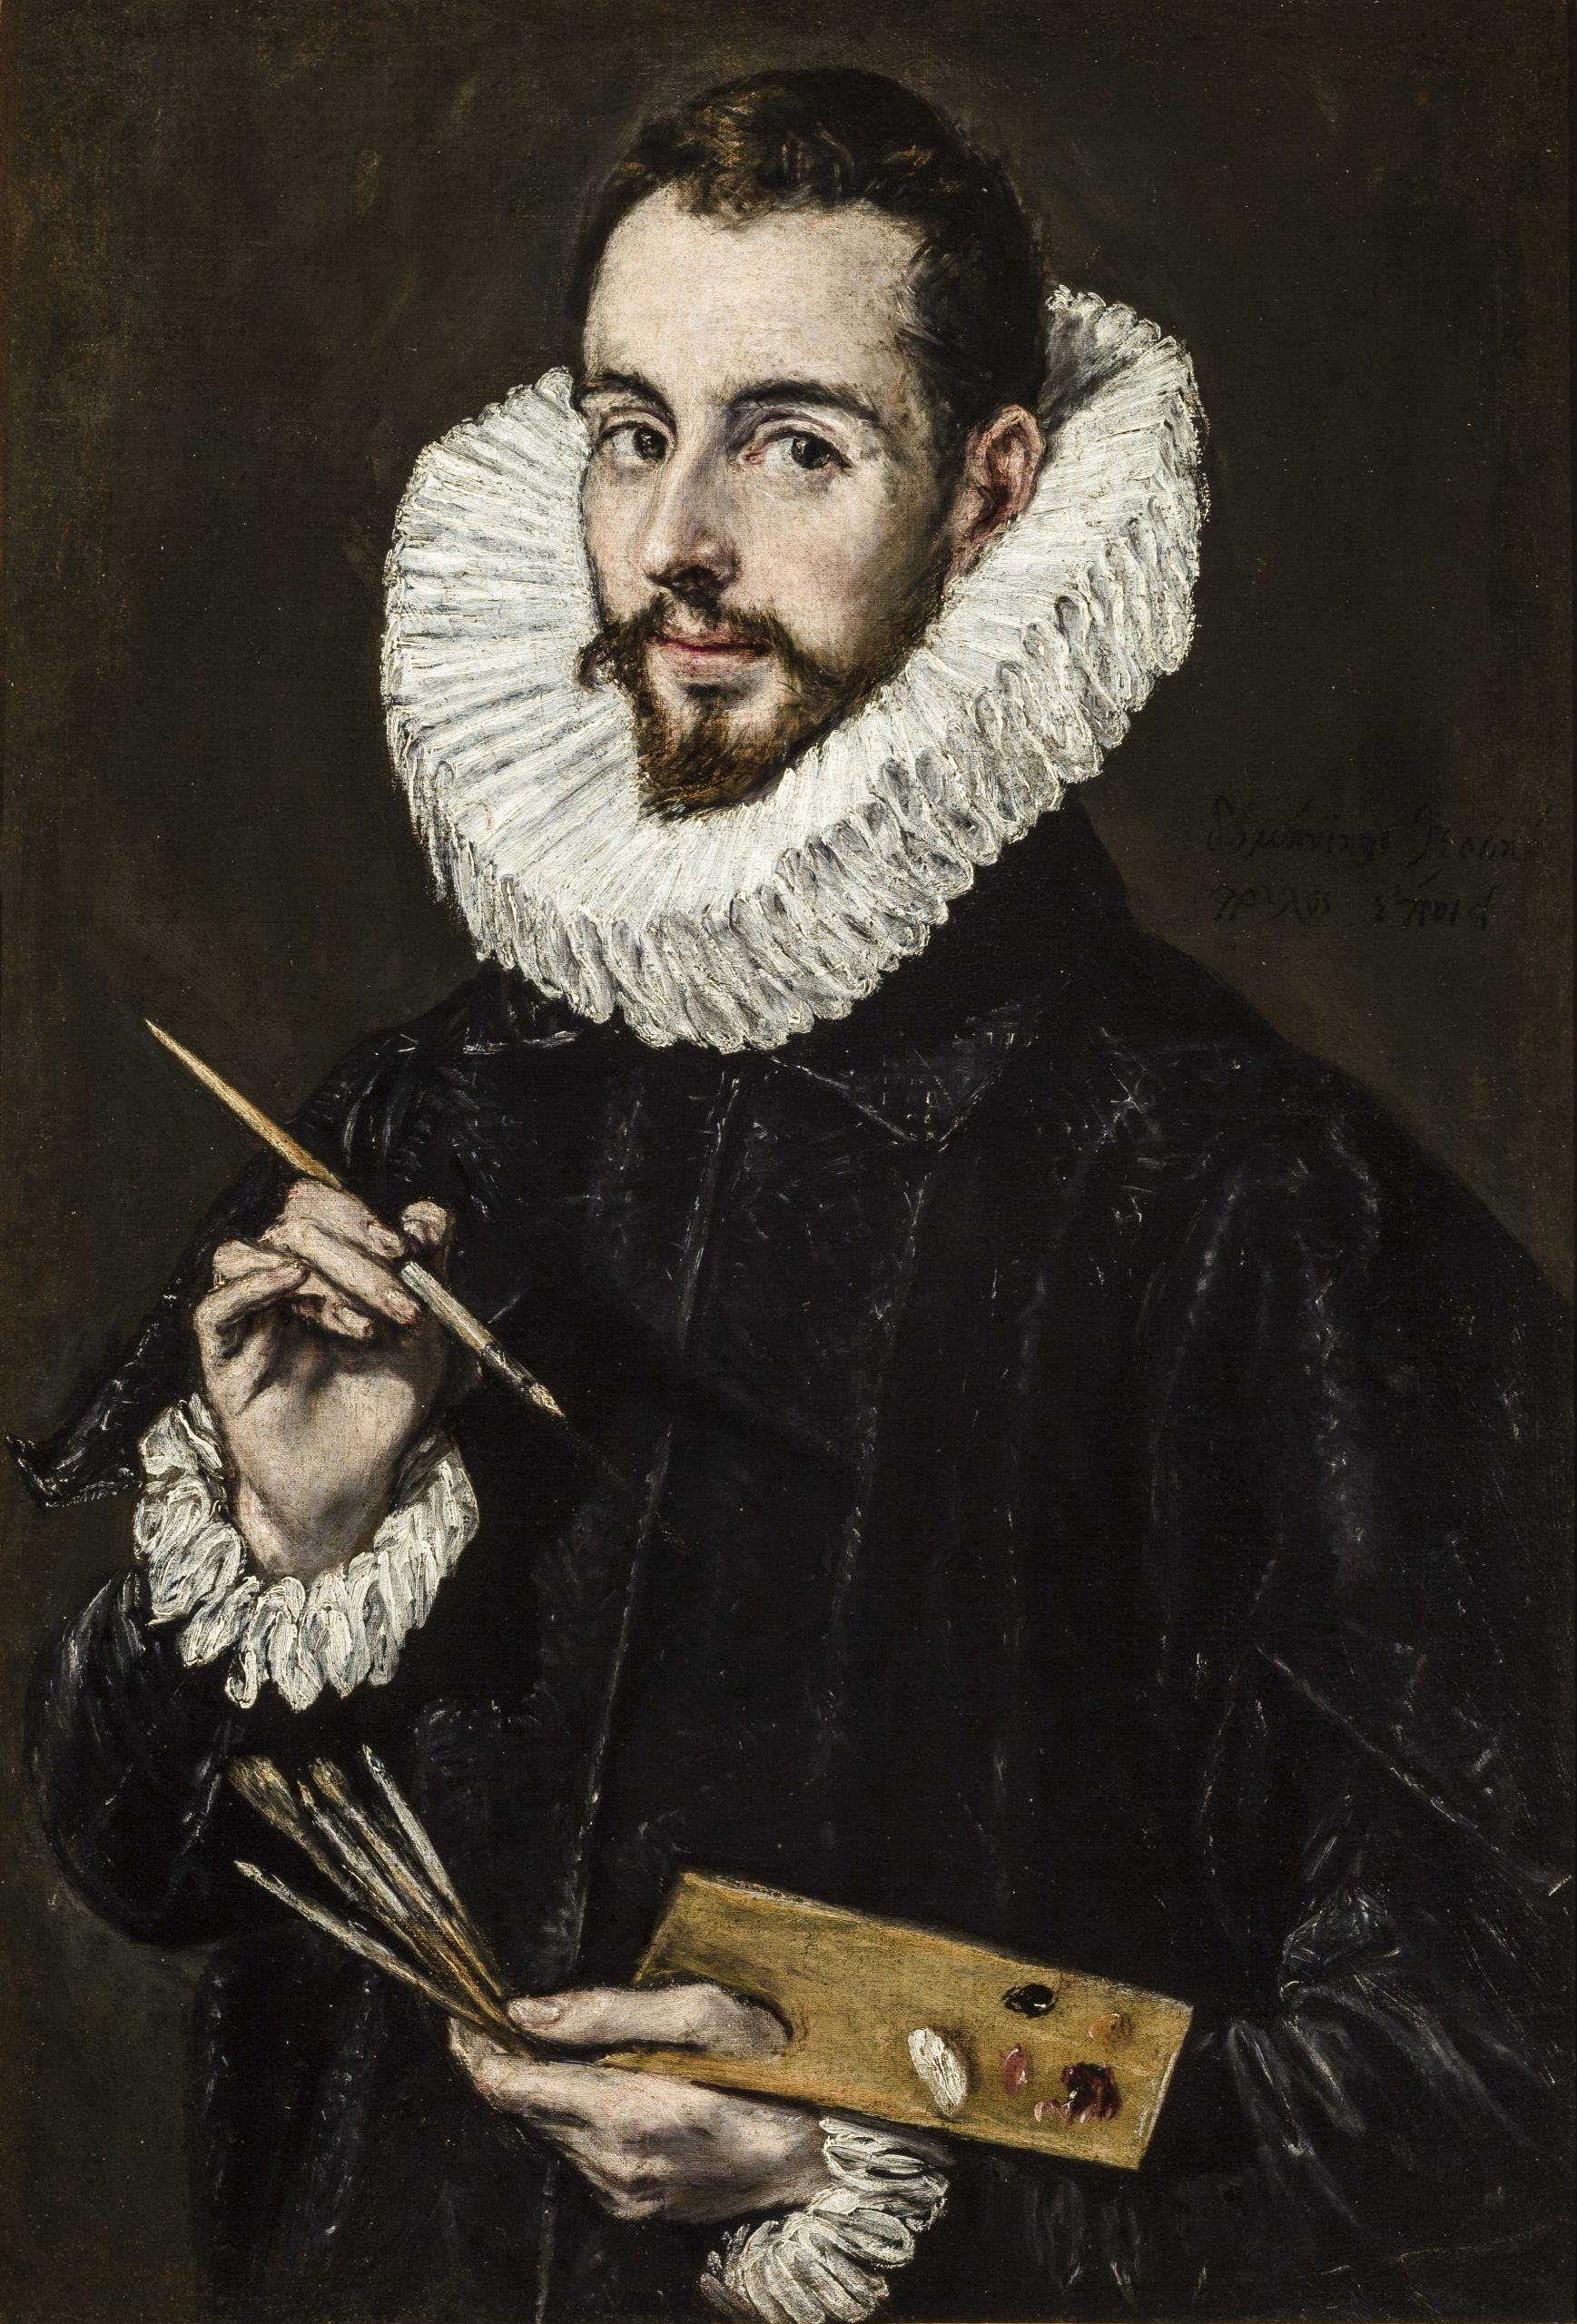 δομήνικος θεοτοκό
πουλος ἐποίει